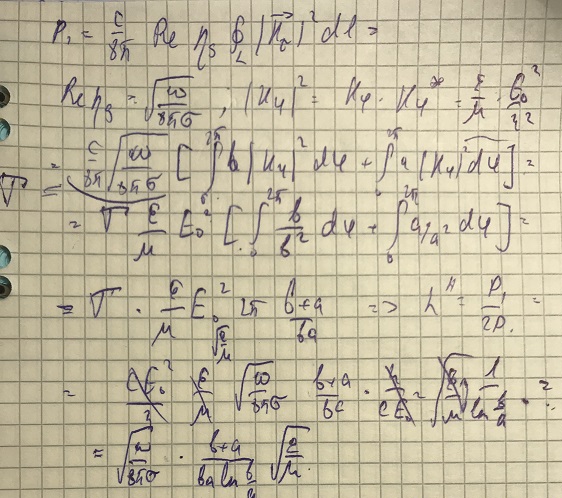 P₁ = c/8π Re η_s ∮_L |H⃗_τ|² dl =
Re η_s = √(ω/8πσ) ; |H_φ|² = H_φ · H_φ* = ε/μ · E₀²/r²
= c/8π √(ω/8πσ) [ ∫₀^2π b |H_φ|² dφ + ∫₀^2π a |H_φ|² dφ ] =
= ε/μ E₀² [ ∫₀^2π b/b² dφ + ∫₀^2π a/a² dφ ] =
= · ε/μ E₀² 2π (b+a)/ba => h" = P₁/2P =
√(ε/μ)
= cE₀²/2 ε/μ √(ω/8πσ) (b+a)/ba · 2/cE₀² √(ε/μ) 1/(ln b/a) · 2
= √(ω/8πσ) · (b+a)/(ba ln b/a) √(ε/μ).